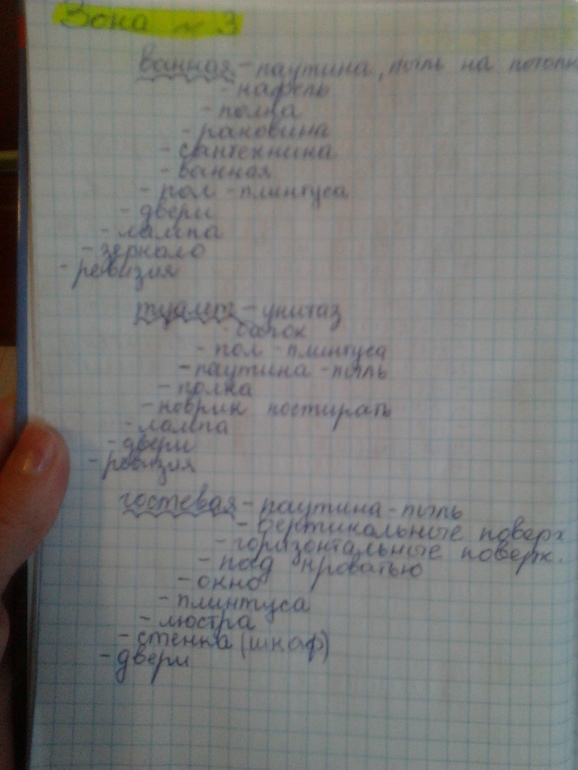 Зона №3
ванная - паутина, пыль на потолк
- кафель
- полка
- раковина
- сантехника
- ванная
- пол - плинтуса
- двери
- лампа
- зеркало
- ревизия
туалет - унитаз
- бачок
- пол - плинтуса
- паутина - пыль
- полка
- коврик постирать
- лампа
- двери
- ревизия
гостевая - паутина - пыль
- вертикальные поверх
- горизонтальные поверх.
- под кроватью
- окно
- плинтуса
- люстра
- стенка (шкаф)
- двери